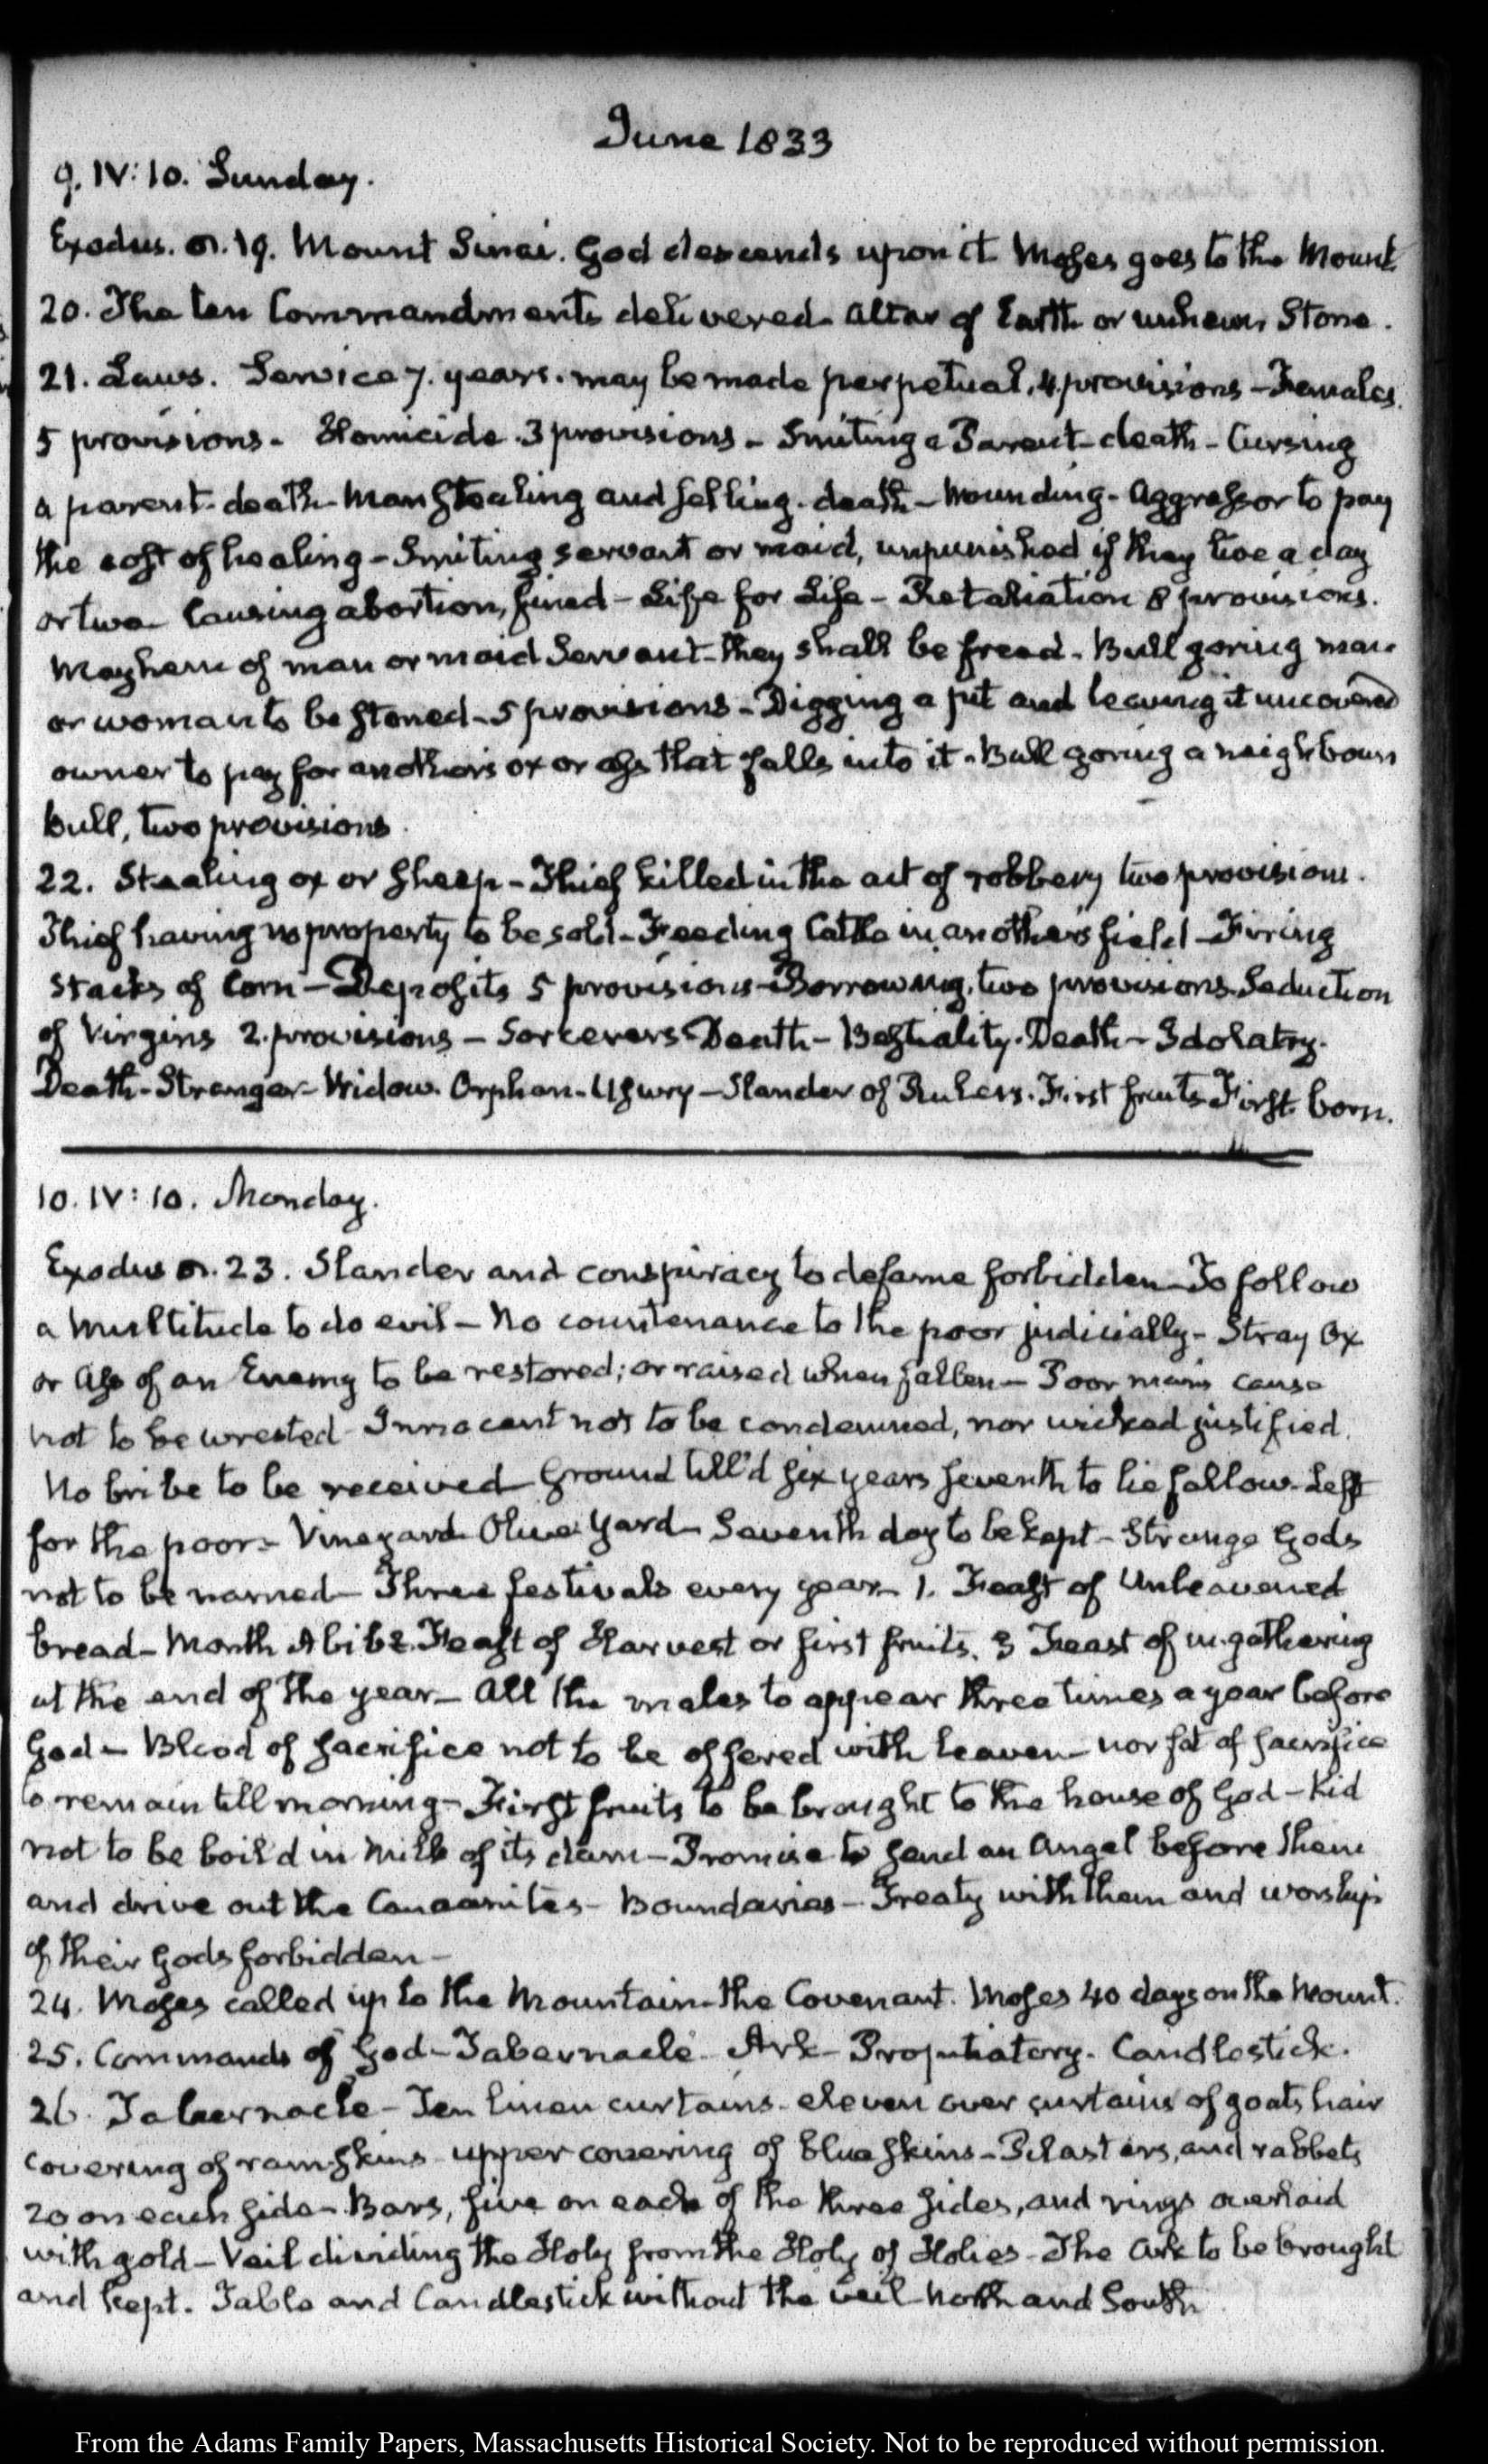 June 1833
9. IV:10. Sunday.
Exodus. on. 19. Mount Sinai. God descends upon it Moses goes to the Mount
20. The ten Commandments delivered. Altar of Earth or unhewn Stone.
21. Laws. Service 7. years. may be made perpetual. 4. provisions – Females.
5 provisions – Homicide. 3 provisions – Smiting a Parent – death – Cursing
a parent – death – Man stealing and selling – death – Wounding – Aggressor to pay
the cost of healing – Smiting servant or maid, unpunished if they live a day
or two – Causing abortion, fined – Life for Life – Retaliation 8 provisions.
Mayhem of man or maid Servant – they shall be freed – Bull goring man
or woman to be stoned – 5 provisions – Digging a pit and leaving it uncovered
owner to pay for another's ox or ass that falls into it – Bull goring a neighbours
bull, two provisions.
22. Stealing ox or sheep – Thief killed in the act of robbery two provisions.
Thief having no property to be sold – Feeding Cattle in another's field – Firing
Stacks of Corn – Deposits 5 provisions – Borrowing, two provisions. Seduction
of Virgins 2. provisions – Sorcerers – Death – Bestiality. Death – Idolatry.
Death – Stranger – Widow. Orphan – Usury – Slander of Rulers. First fruits First born.
10. IV:10. Monday.
Exodus on. 23. Slander and conspiracy to defame forbidden – To follow
a multitude to do evil – No countenance to the poor judicially – Stray Ox
or Ass of an Enemy to be restored; or raised when fallen – Poor mans cause
not to be wrested – Innocent not to be condemned, nor wicked justified.
No bribe to be received – Ground till'd six years seventh to lie fallow – Left
for the poor – Vineyard – Olive Yard – Seventh day to be kept – Strange Gods
not to be named – Three festivals every year – 1. Feast of Unleavened
bread – Month Abib 2. Feast of Harvest or first fruits. 3 Feast of ingathering
at the end of the year – All the males to appear three times a year before
God – Blood of sacrifice not to be offered with leaven – nor fat of sacrifice
to remain till morning – First fruits to be brought to the house of God – Kid
not to be boil'd in milk of its dam – Promise to send an Angel before them
and drive out the Canaanites – Boundaries – Treaty with them and worship
of their Gods forbidden –
24. Moses called up to the Mountain – the Covenant. Moses 40 days on the Mount.
25. Commands of God – Tabernacle – Ark – Propitiatory. Candlestick.
26. Tabernacle – Ten linen curtains – eleven over curtains of goats hair
covering of ram skins – upper covering of blue skins – Pilasters, and rabbets
20 on each side – Bars, five on each of the three sides, and rings overlaid
with gold – Veil dividing the Holy from the Holy of Holies – The Ark to be brought
and kept. Table and Candlestick without the veil North and South
From the Adams Family Papers, Massachusetts Historical Society. Not to be reproduced without permission.